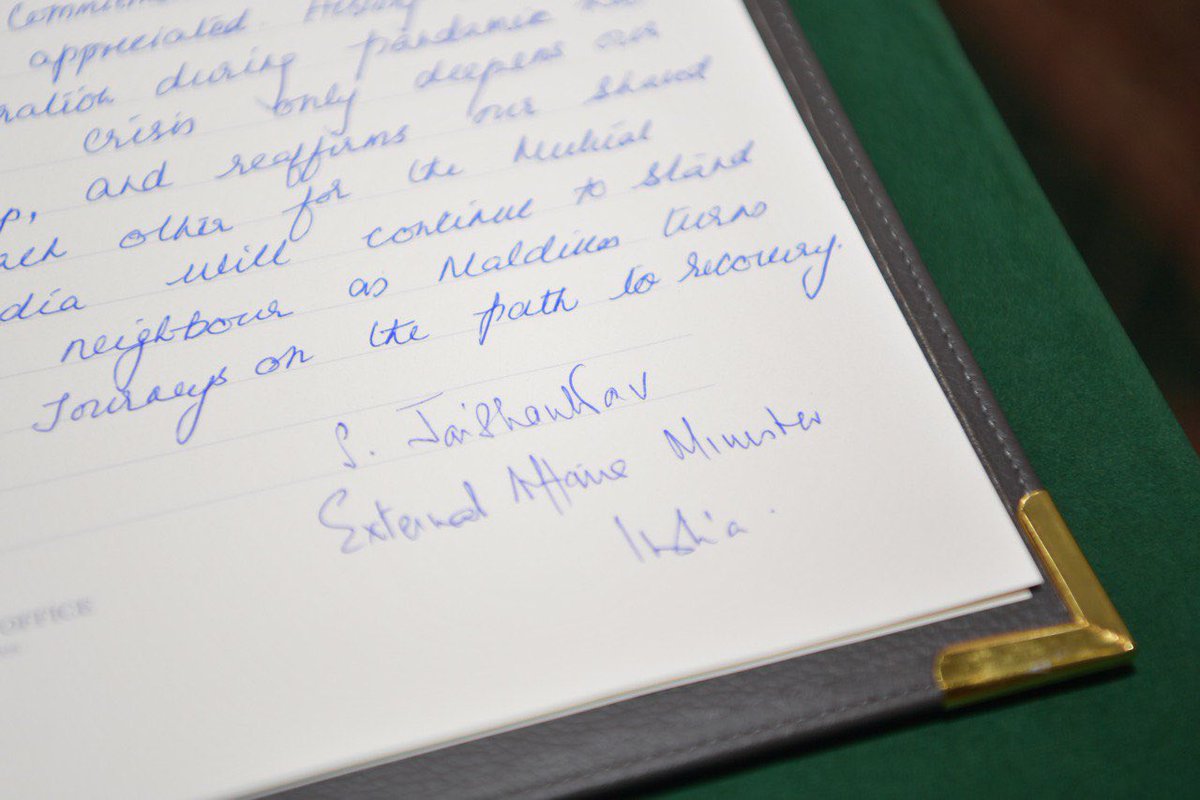 Commitm
appreciated. History
ration during pandemic ha
crisis only deepens our
p, and reaffirms our shared
ach other for the Mutual
dia will continue to stand
neighbour as Maldives turns
Journeys on the path to recovery.
S. Jaishankar
External Affairs Minister
India.
OFFICE